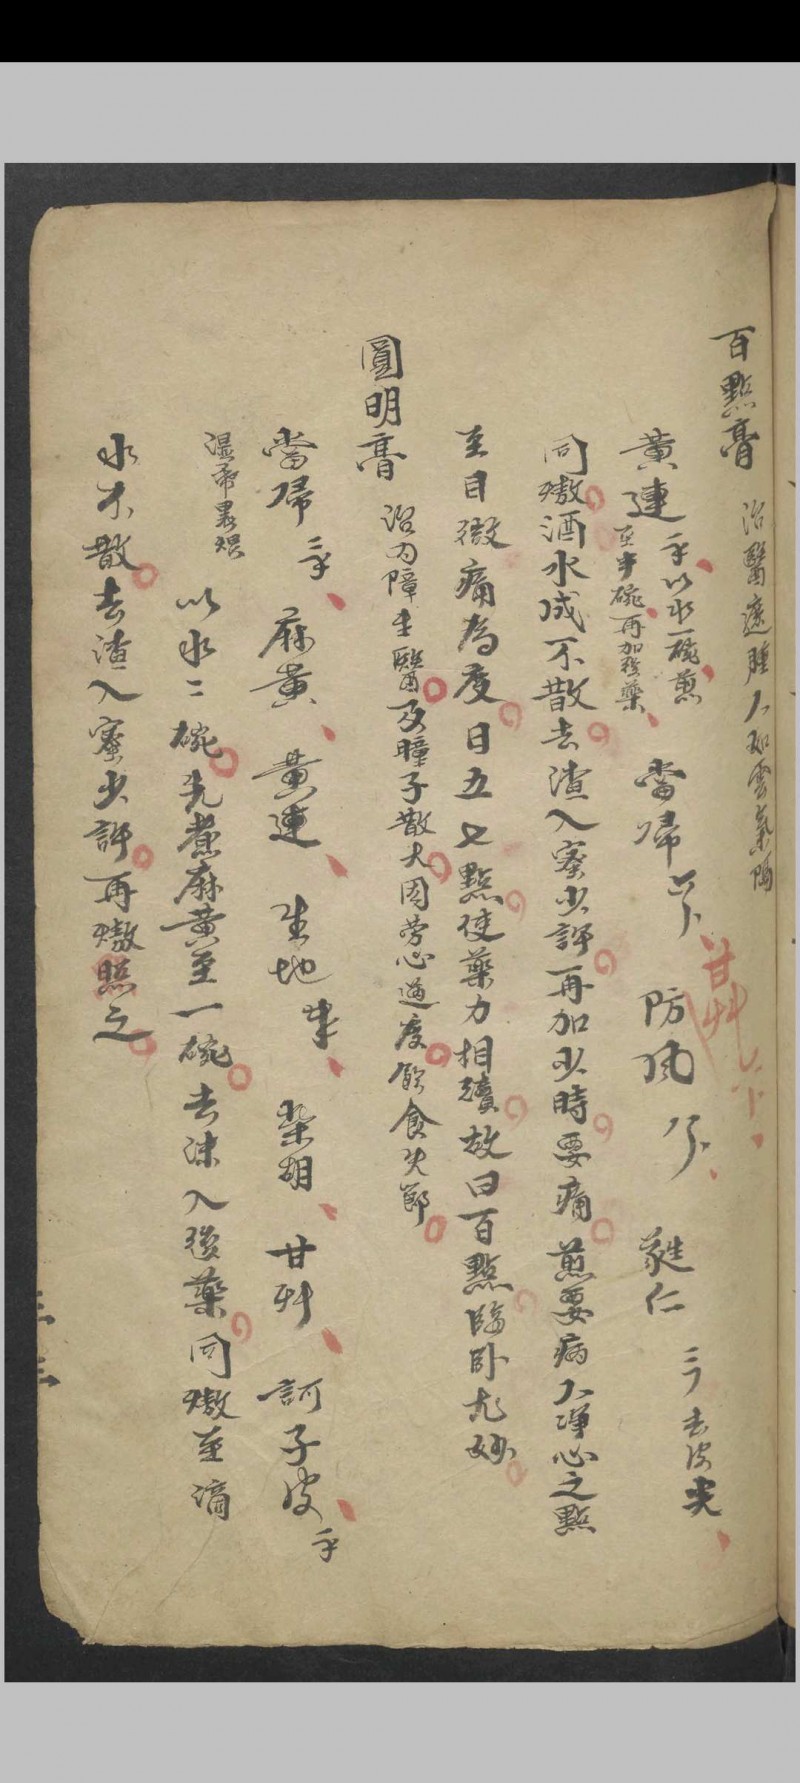 百點膏 治醫遮腫人如雲氣隔
黃連 以水一碗煎
至半碗再加後藥 當歸 甘艸 防風 蕤仁 去皮尖
同熬酒水成不散去渣入蜜少許再加少時要痛煎要病人淨心之點
至目微痛為度日五七點使藥力相續故曰百點臨卧尤妙
圓明膏 治內障生醫及瞳子散大因勞心過度飲食失節
當歸 麻黃 黃連 生地 柴胡 甘艸 訶子皮
濕帋裹煨 以水二碗先煮麻黃至一碗去沫入後藥同熬至滴
水不散去渣入蜜少許再熬照之